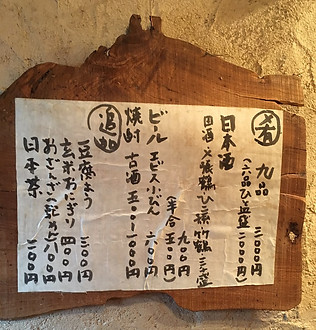 肴 九品 三〇〇〇円
(六品ひと盛 二〇〇〇円)
日本酒
田酒 〆張鶴 ひこ孫 竹鶴 三千盛
九〇〇円
(半合 五〇〇円)
ビール ヱビス小びん 六〇〇円
焼酎 古酒 五〇〇〜一〇〇〇円
追加
豆腐よう 三〇〇円
玄米おにぎり 四〇〇円
おざんざ(乾めん)八〇〇円
日本茶 二〇〇円